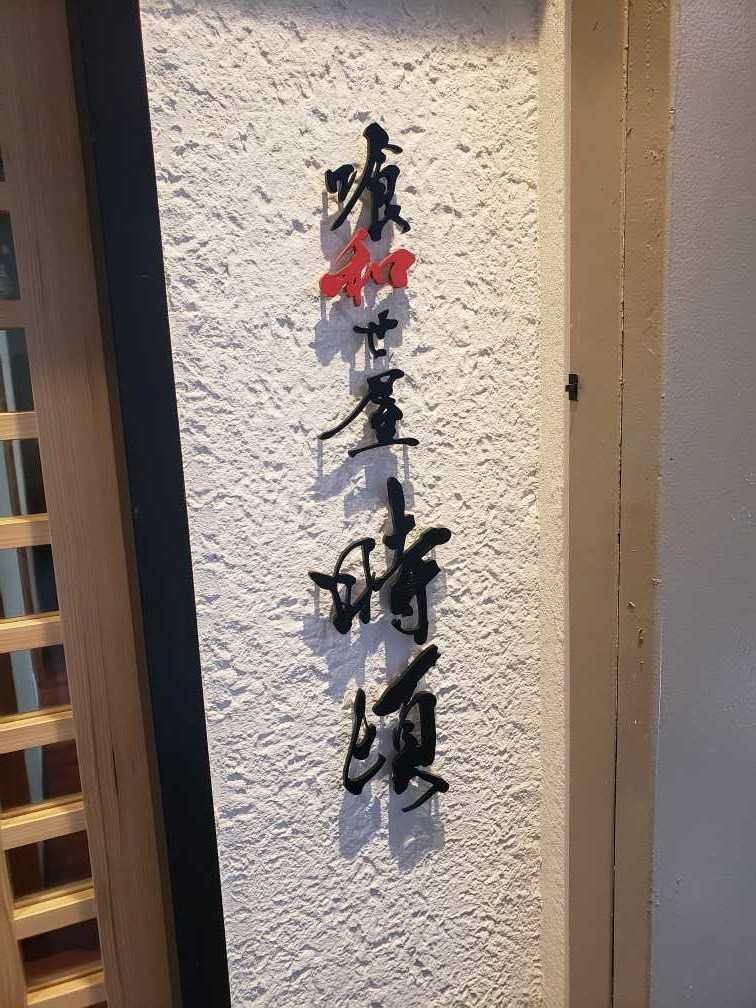 喰和世屋時頃